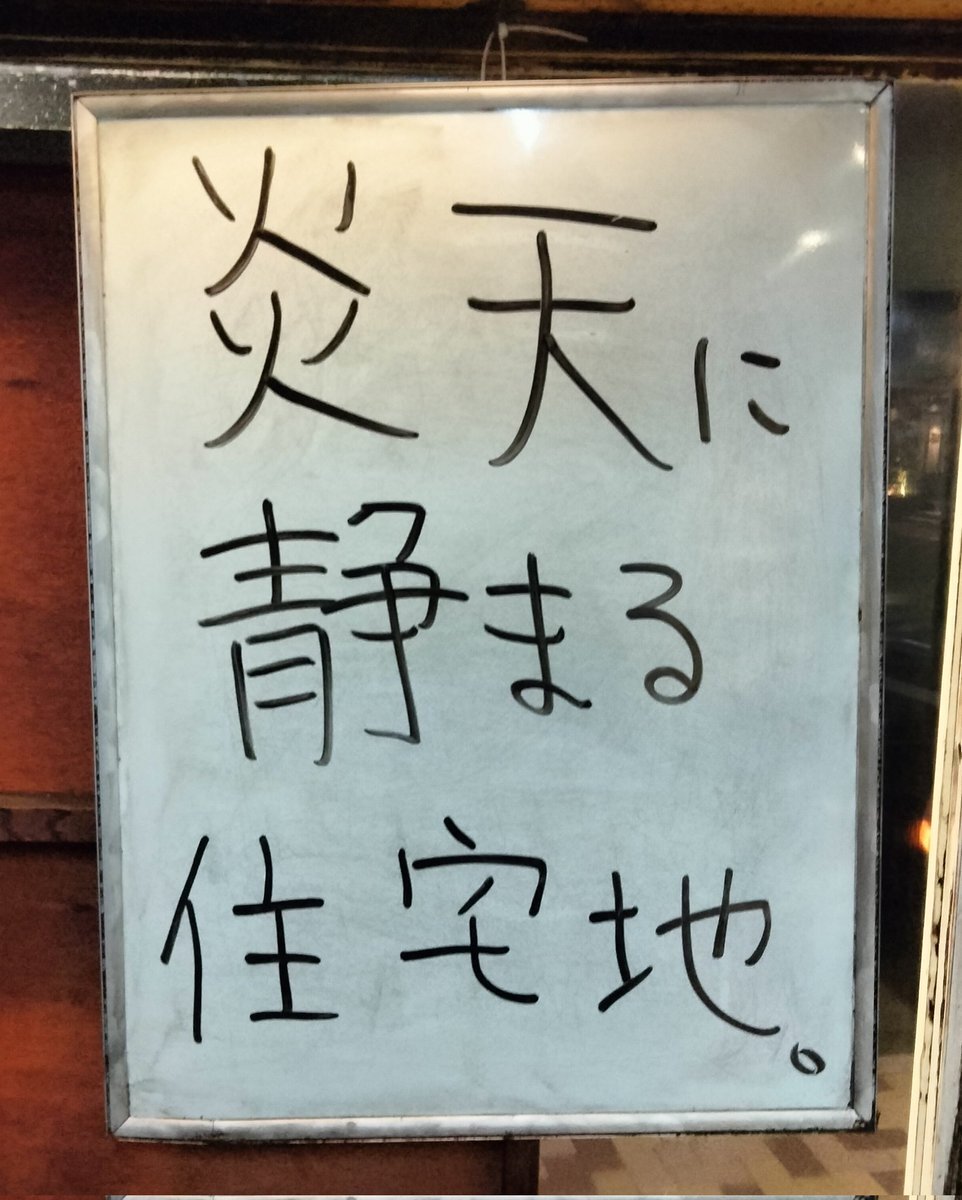 炎天に
静まる
住宅地。